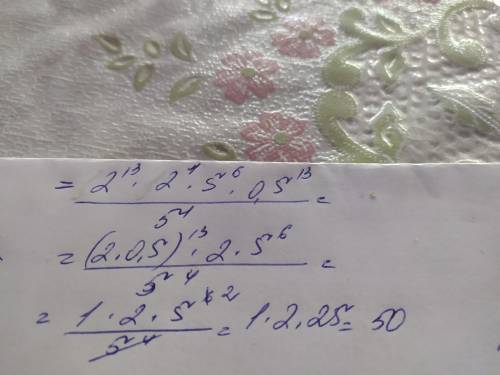 = 2^13 · 2^1 · 5^6 · 0,5^13 / 5^4 =
= (2 · 0,5)^13 · 2 · 5^6 / 5^4 =
= 1 · 2 · 5^6 2 / 5^4 = 1 · 2 · 25 = 50